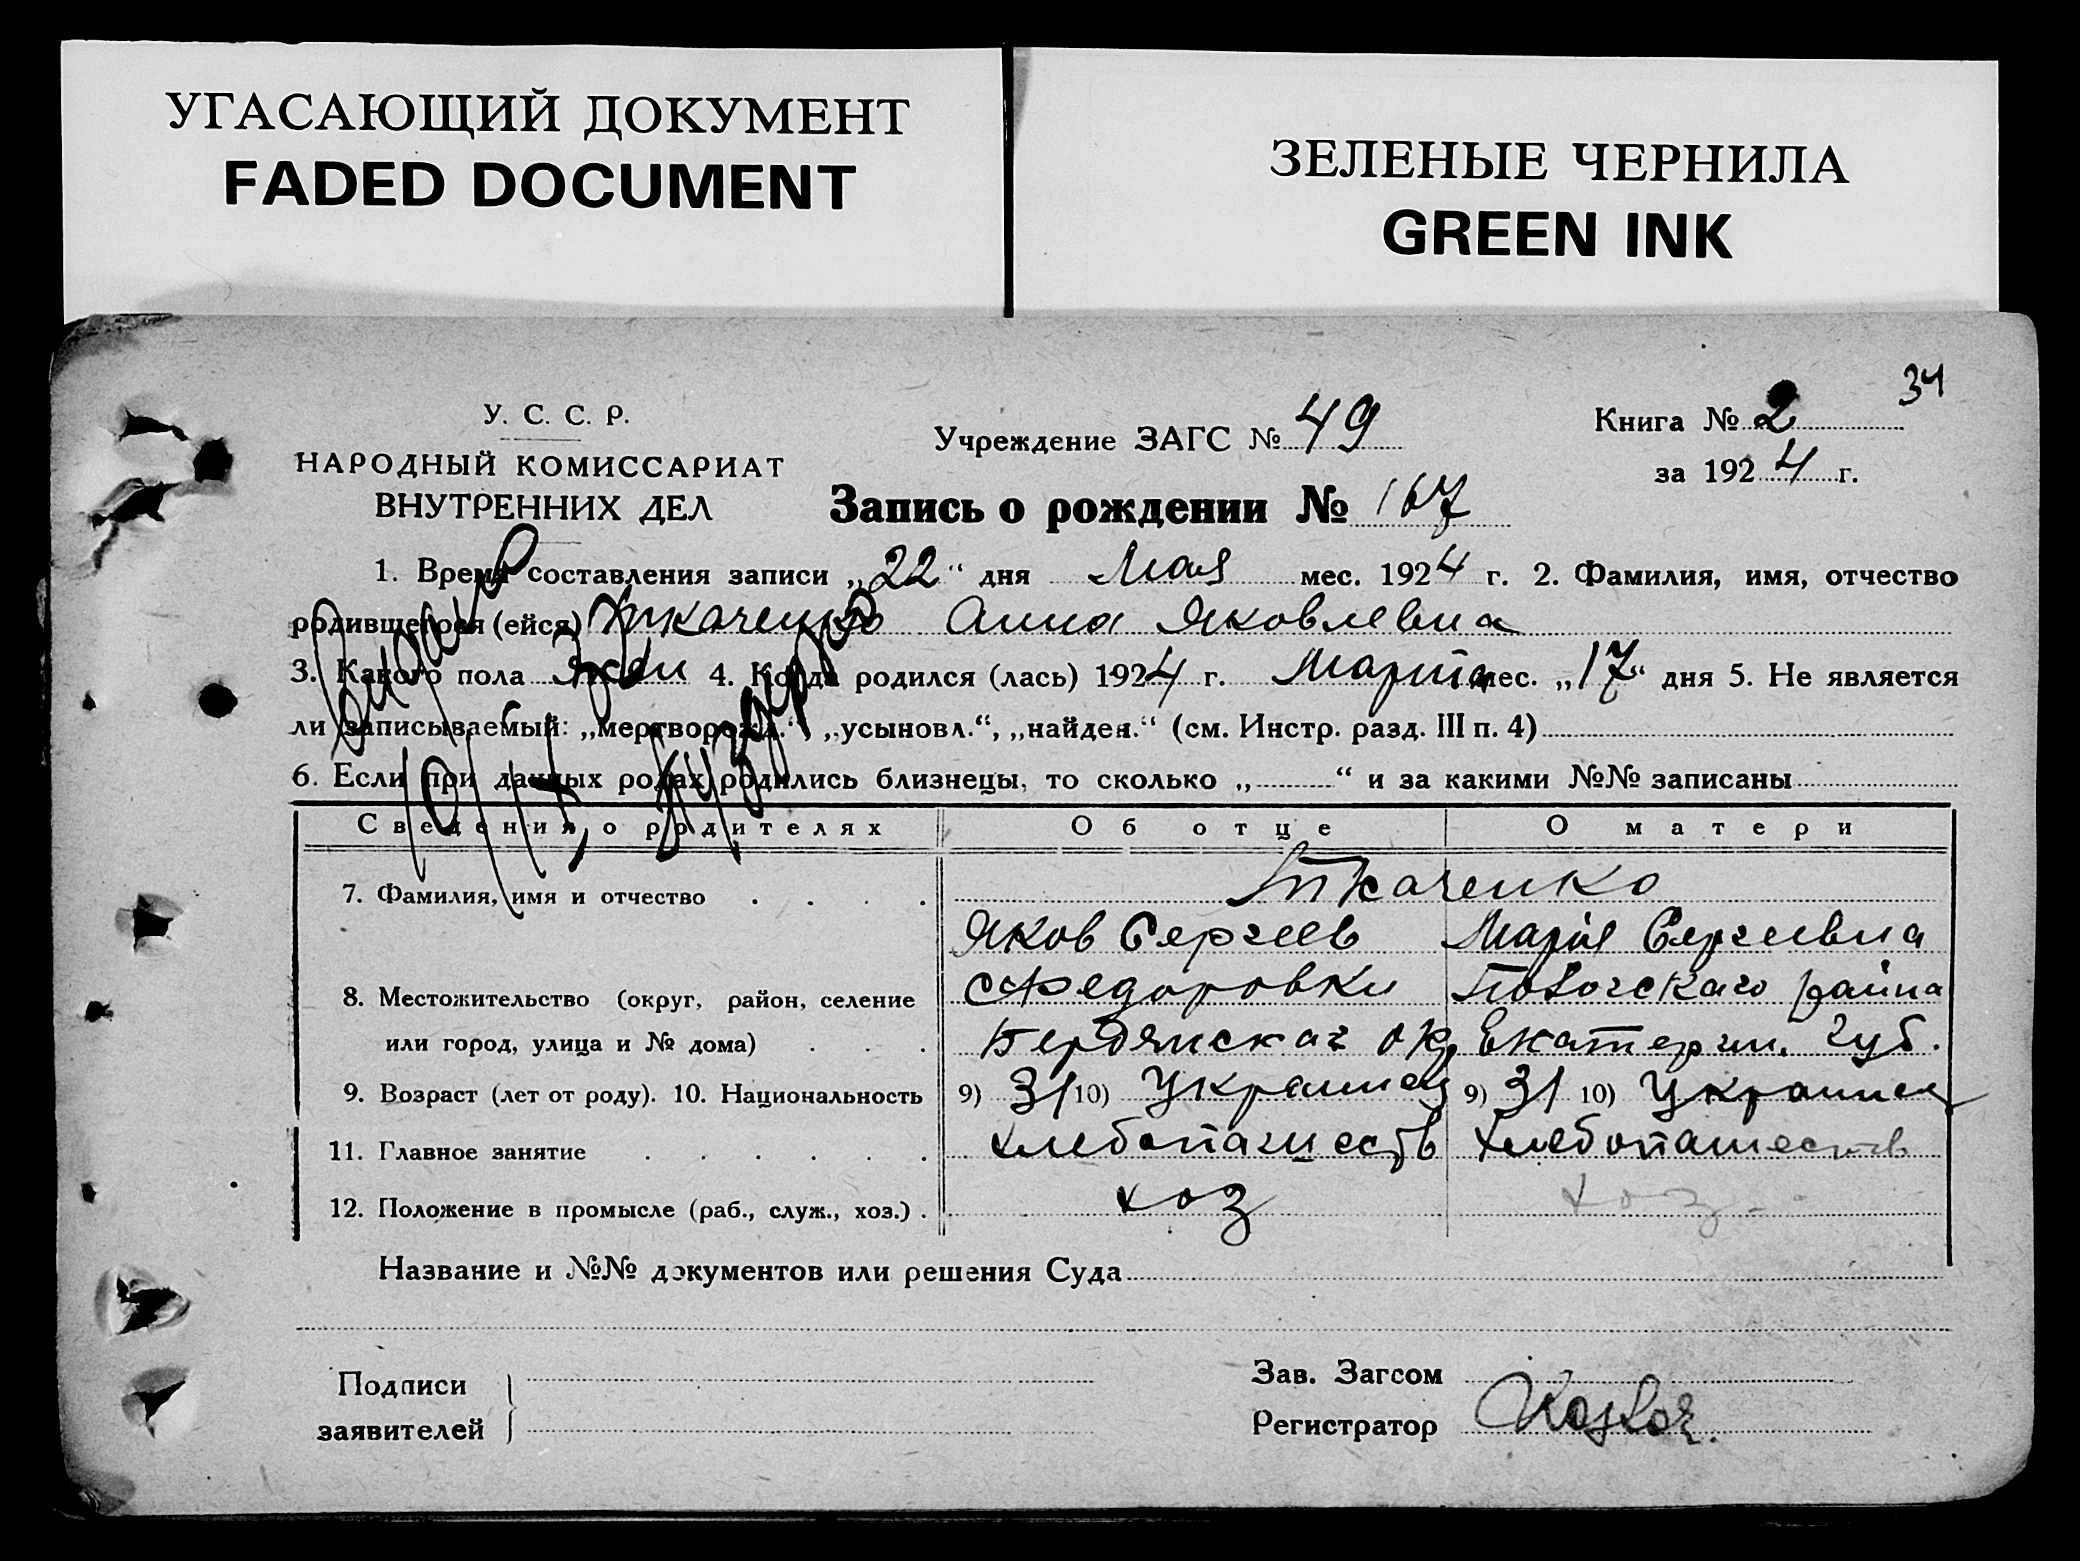 УГАСАЮЩИЙ ДОКУМЕНТ
FADED DOCUMENT
ЗЕЛЕНЫЕ ЧЕРНИЛА
GREEN INK
34
У. С. С. Р.
НАРОДНЫЙ КОМИССАРИАТ
ВНУТРЕННИХ ДЕЛ
Учреждение ЗАГС № 49
Книга № 2
за 1924 г.
Запись о рождении № 167
1. Время составления записи „22“ дня Мая мес. 1924 г. 2. Фамилия, имя, отчество
родившегося (ейся) Ткаченко Анна Яковлевна
3. Какого пола жен 4. Когда родился (лась) 1924 г. Марта мес. „17“ дня 5. Не является
ли записываемый: „мертворожд.“, „усыновл.“, „найден.“ (см. Инстр. разд. III п. 4)
6. Если при данных родах родились близнецы, то сколько „ “ и за какими №№ записаны
Сведения о родителях Об отце О матери
7. Фамилия, имя и отчество Ткаченко
Яков Сергеев Марія Сергеевна
8. Местожительство (округ, район, селение с Федоровки района
или город, улица и № дома) Бердянскаг окр Екатерин. губ.
9. Возраст (лет от роду). 10. Национальность 9) 31 10) Украинец 9) 31 10) Украинец
11. Главное занятие хлебопашеств хлебопашеств
12. Положение в промысле (раб., служ., хоз.) хоз хоз.
Название и №№ документов или решения Суда
Подписи
заявителей
Зав. Загсом
Регистратор